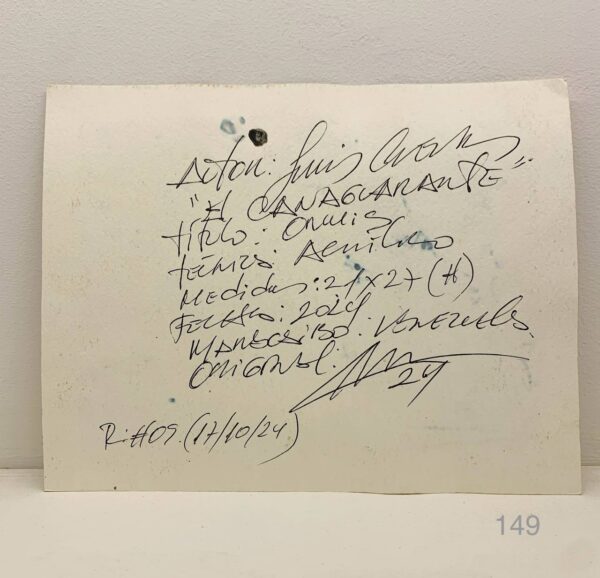 Autor: Luis Cuevas
"El CANAGUARANTE"
título: Onulis
técnica: Acrílico
Medidas: 21x27 (H)
Fecha: 2024
Maracaibo: Venezuela
Original: 24
R: #09. (17/10/24)
149